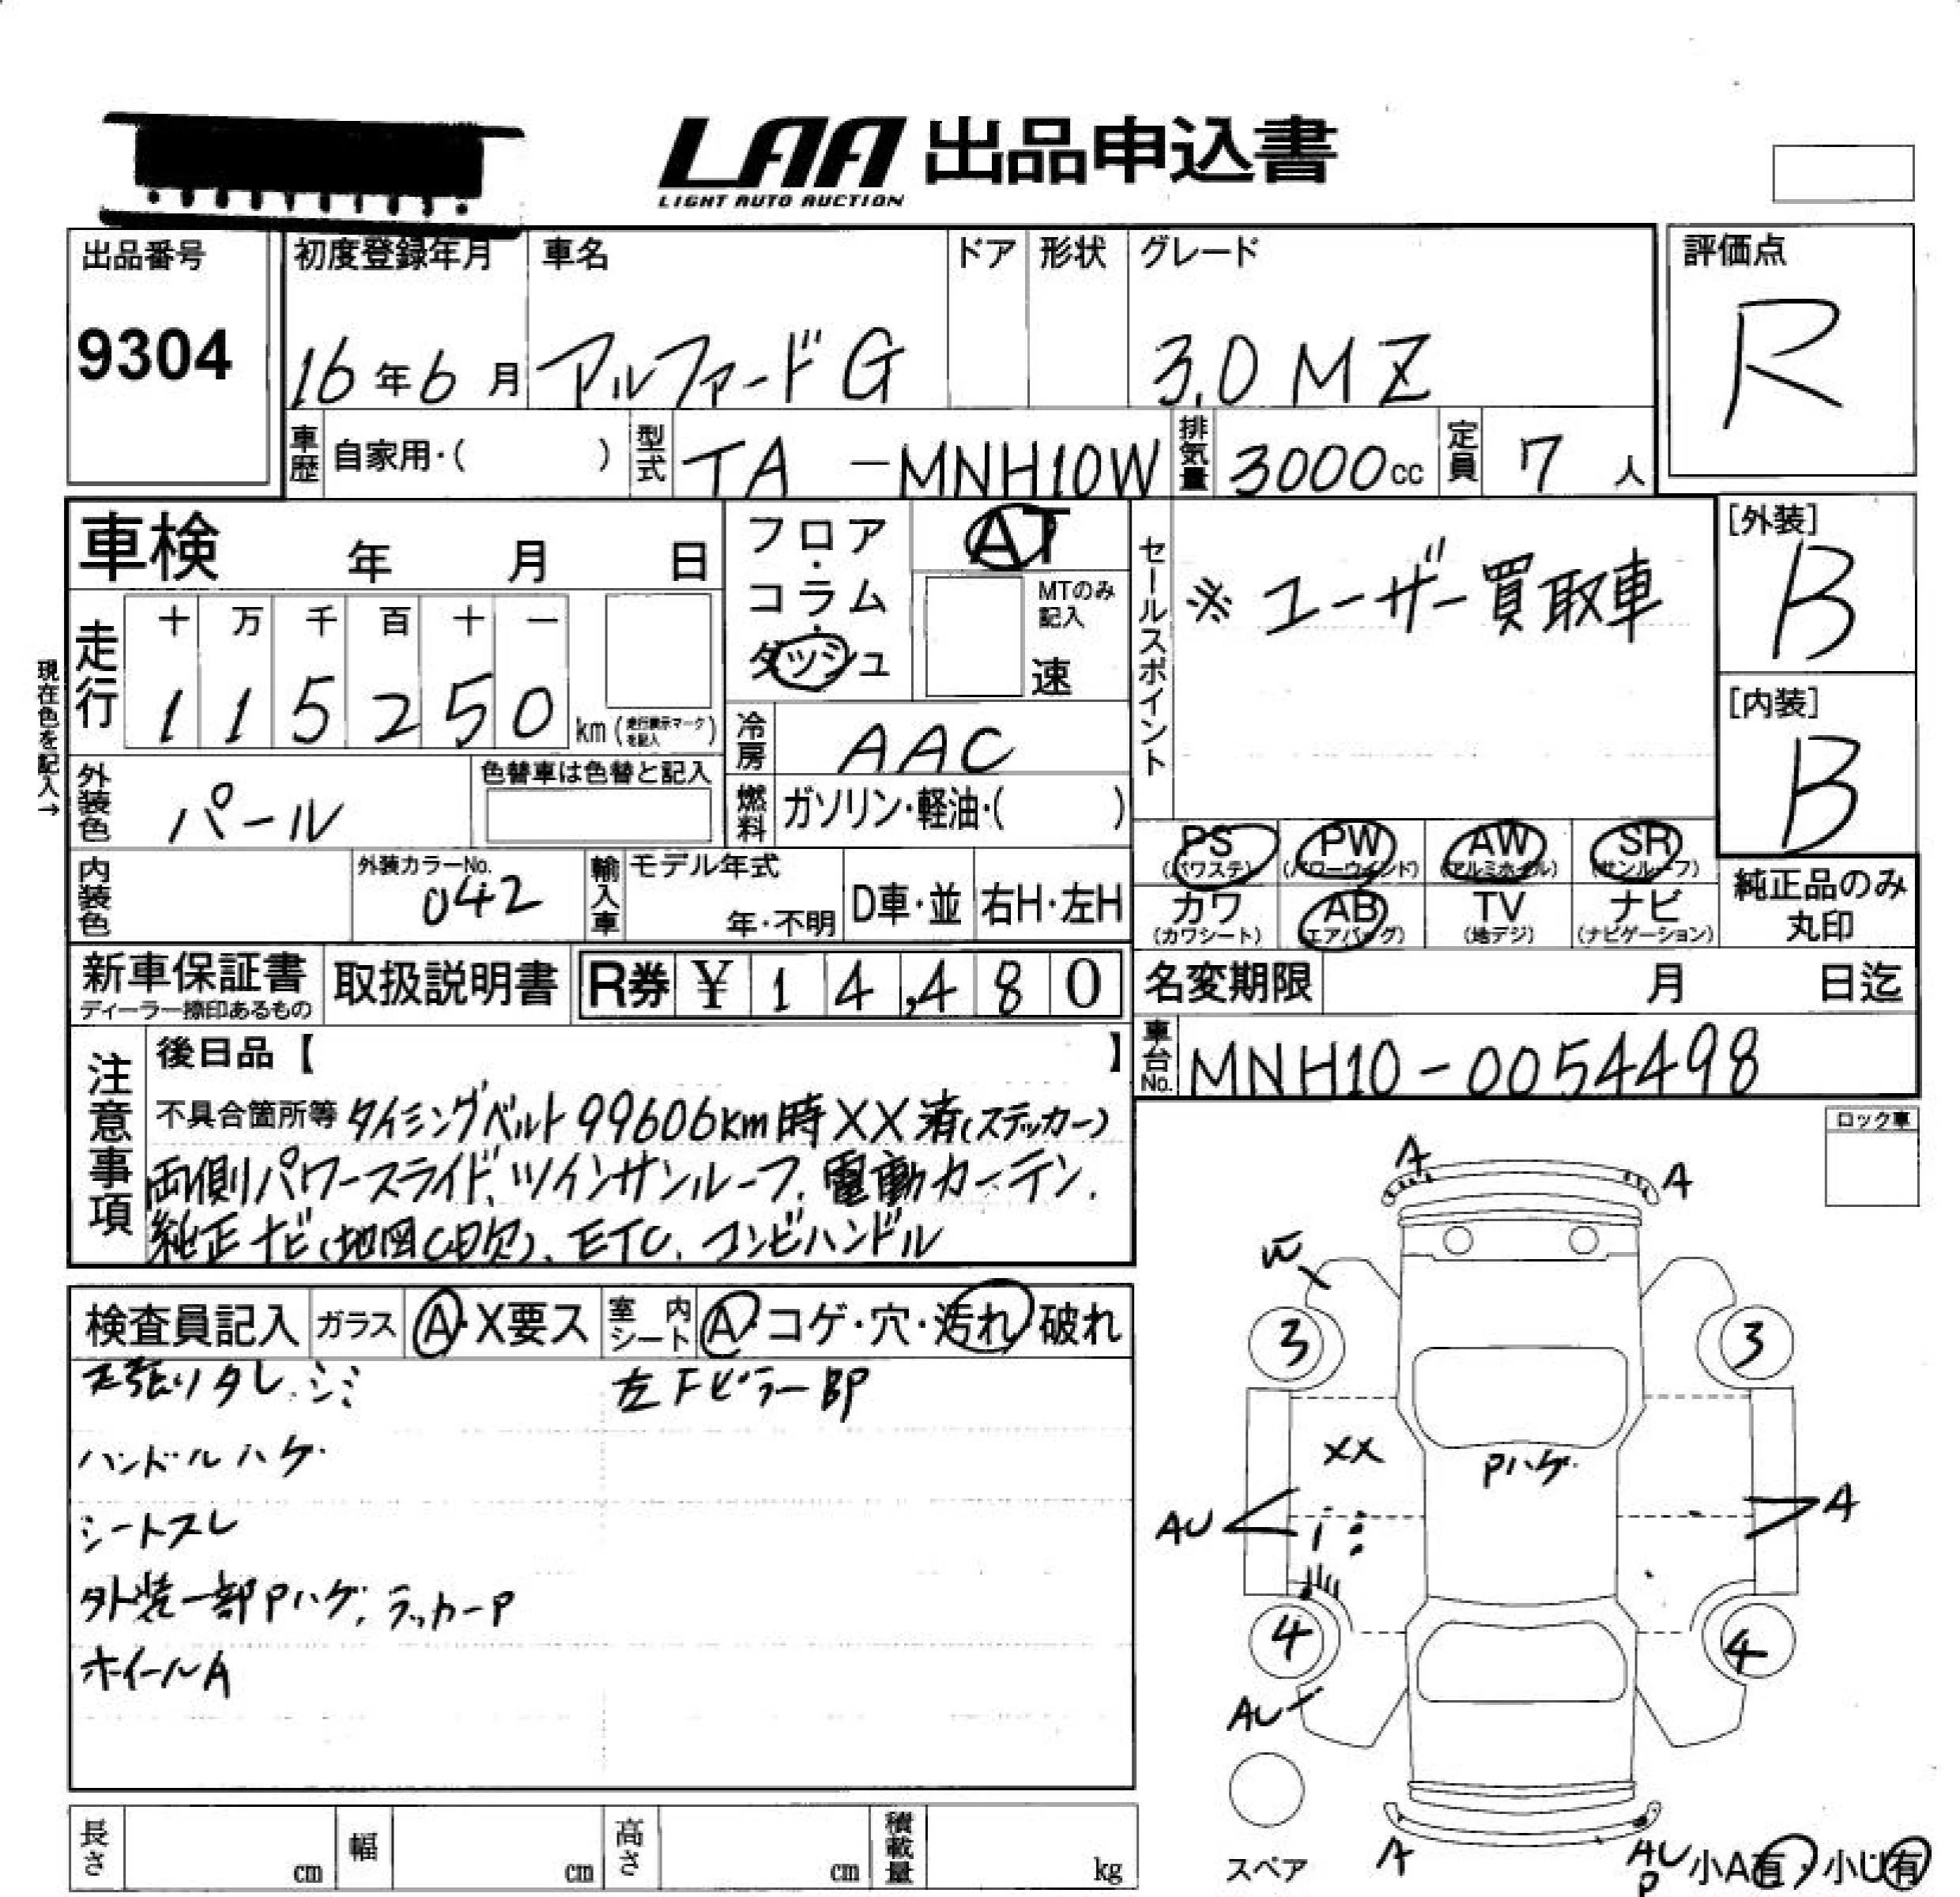 LAA 出品申込書
LIGHT AUTO AUCTION
出品番号 初度登録年月 車名 ドア 形状 グレード 評価点
9304 16年6月 アルファードG 3.0 MZ R
車歴 自家用・( ) 型式 TA -MNH10W 排気量 3000cc 定員 7人
車検 年 月 日 フロア・コラム・ダッシュ AT
MTのみ記入 速
セールスポイント ※ユーザー買取車
[外装] B
[内装] B
現在色を記入→
走行 十 万 千 百 十 一
1 1 5 2 5 0 km (走行表示マークを記入)
冷房 AAC
外装色 パール 色替車は色替と記入
燃料 ガソリン・軽油・( )
PS (パワステ) PW (パワーウインド) AW (アルミホイル) SR (サンルーフ)
カワ (カワシート) AB (エアバッグ) TV (地デジ) ナビ (ナビゲーション)
純正品のみ丸印
内装色 外装カラーNo. 042 輸入車 モデル年式 年・不明 D車・並 右H・左H
新車保証書 ディーラー捺印あるもの 取扱説明書 R券 ¥ 1 4,4 8 0
名変期限 月 日迄
車台No. MNH10-0054498
注意事項 後日品【 】
不具合箇所等 タイミングベルト99606km時XX済(ステッカー)
両側パワースライド、ツインサンルーフ、電動カーテン、
純正ナビ(地図CD欠)、ETC、コンビハンドル
ロック車
検査員記入 ガラス A・X要ス 室内シート A・コゲ・穴・汚れ 破れ
天張りタレ、シミ 左Fピラー BP
ハンドルハゲ
シートスレ
外装一部Pハゲ、ラッカーP
ホイールA
A A
3 3
XX Pハゲ
AU A
4 4
AU
スペア A AU P 小A有・小U有
長さ cm 幅 cm 高さ cm 積載量 kg